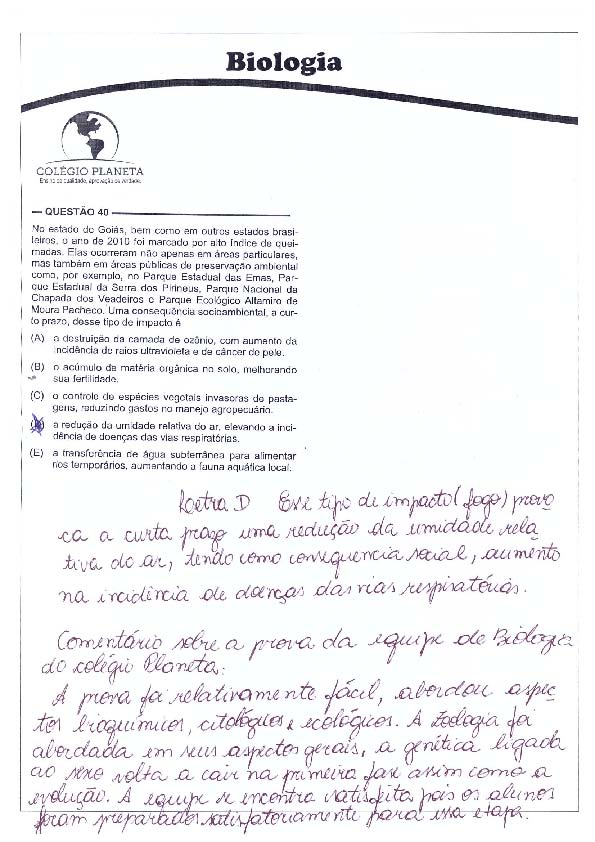 Biologia
COLÉGIO PLANETA
Ensino de qualidade, aprovação de verdade.
QUESTÃO 40
No estado de Goiás, bem como em outros estados brasi-
leiros, o ano de 2010 foi marcado por alto índice de quei-
madas. Elas ocorreram não apenas em áreas particulares,
mas também em áreas públicas de preservação ambiental
como, por exemplo, no Parque Estadual das Emas, Par-
que Estadual da Serra dos Pirineus, Parque Nacional da
Chapada dos Veadeiros e Parque Ecológico Altamiro de
Moura Pacheco. Uma consequência socioambiental, a cur-
to prazo, desse tipo de impacto é
(A) a destruição da camada de ozônio, com aumento da
incidência de raios ultravioleta e de câncer de pele.
(B) o acúmulo de matéria orgânica no solo, melhorando
sua fertilidade.
(C) o controle de espécies vegetais invasoras de pasta-
gens, reduzindo gastos no manejo agropecuário.
a redução da umidade relativa do ar, elevando a inci-
dência de doenças das vias respiratórias.
(E) a transferência de água subterrânea para alimentar
rios temporários, aumentando a fauna aquática local.
Letra D Esse tipo de impacto (fogo) provo
ca a curto prazo uma redução da umidade rela
tiva do ar, tendo como consequencia social, aumento
na incidência de doenças das vias respiratórias.
Comentário sobre a prova da equipe de Biologia
do colégio Planeta:
A prova foi relativamente fácil, abordou aspec
tos bioquímicos, citológicos e ecológicos. A Zoologia foi
abordada em seus aspectos gerais, a genética ligada
ao sexo volta a cair na primeira fase assim como a
evolução. A equipe se encontra satisfeita pois os alunos
foram preparados satisfatoriamente para essa etapa.